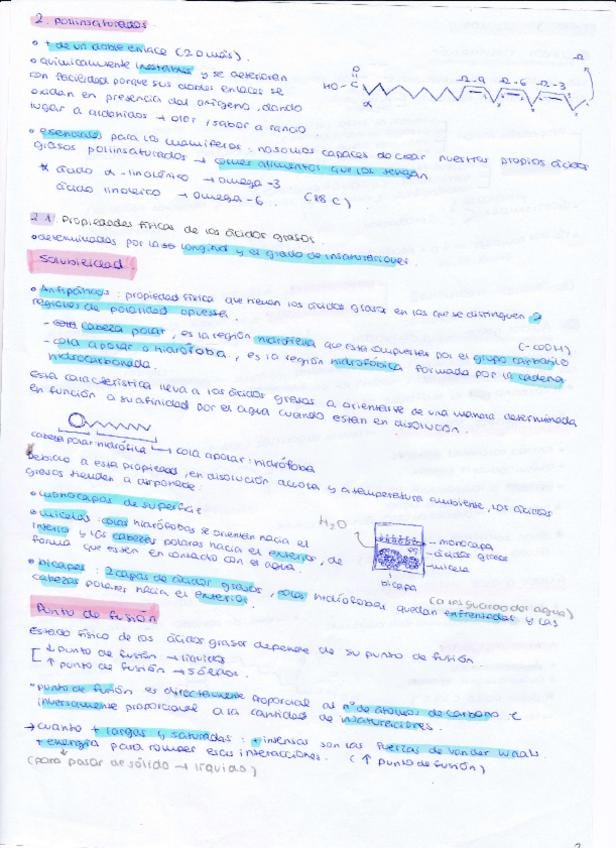 2. Poliinsaturados.
• + de un doble enlace (2 o más).
• químicamente inestables y se deterioran
con facilidad porque sus dobles enlaces se
oxidan en presencia del oxígeno, dando
lugar a aldehidos → olor / sabor a rancio.
O
HO-C
α
Ω-9 Ω-6 Ω-3
Ω
• esenciales para los mamíferos: no somos capaces de crear nuestros propios ácidos
grasos poliinsaturados → comer alimentos que los tengan
* ácido α-linolénico → omega-3
ácido linoleico → omega-6. (18 C)
2.1. Propiedades físicas de los ácidos grasos.
• determinadas por la longitud y el grado de insaturaciones.
Solubilidad.
• Anfipáticos: propiedad física que tienen los ácidos grasos en los que se distinguen 2
regiones de polaridad opuesta.
- cabeza polar, es la región hidrófila que está compuesta por el grupo carboxilo
(-COOH)
- cola apolar o hidrófoba, es la región hidrofóbica formada por la cadena
hidrocarbonada.
Esta característica lleva a los ácidos grasos a orientarse de una manera determinada
en función a su afinidad por el agua cuando están en disolución.
cabeza polar hidrófila → cola apolar: hidrófoba
Debido a esta propiedad, en disolución acuosa y a temperatura ambiente, los ácidos
grasos tienden a disponerse:
• monocapas de superficie
• micelas: colas hidrófobas se orientan hacia el
interio y las cabezas polares hacia el exterior, de
forma que estén en contacto con el agua.
H₂O
- monocapa
- ácidos grasos
- micela
bicapa
• bicapas: 2 capas de ácido grasos, colas hidrófobas quedan enfrentadas y las
cabezas polares hacia el exterior.
Punto de fusión
Estado físico de los ácidos grasos depende de su punto de fusión.
↓ punto de fusión → líquidos
↑ punto de fusión → sólidos.
• punto de fusión es directamente proporcial al nº de átomos de carbono e
inversamente proporcional a la cantidad de insaturaciones.
→ cuanto + largas y saturadas: + intensas son las fuerzas de van der Waals
+ energía para romper esas interacciones. (↑ punto de fusión)
(para pasar de sólido → líquido)